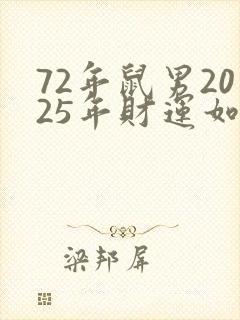 72年鼠男20
25年財運如
梁邦屏